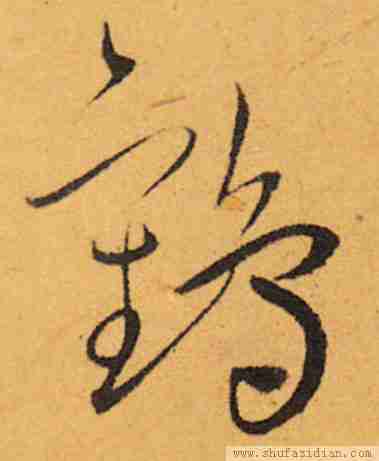 鶴
www.shufazidian.com